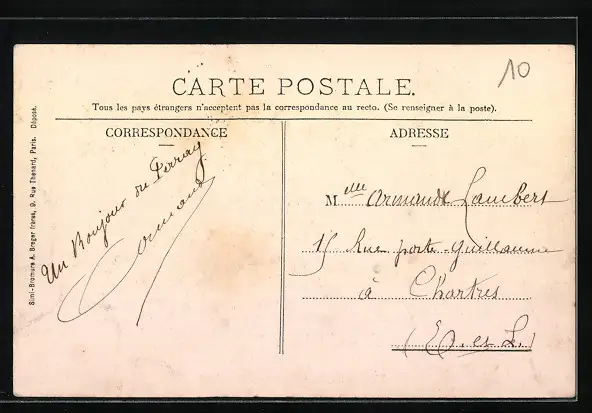 10
CARTE POSTALE.
Tous les pays étrangers n'acceptent pas la correspondance au recto. (Se renseigner à la poste).
CORRESPONDANCE
Un Bonjour du Perray
Armand
ADRESSE
Melle Armande Lambert
15 Rue porte-Guillaume
à Chartres
(E.-et-L.)
Simi-Bromure A. Breger frères, 9, Rue Thénard, Paris. Déposé.